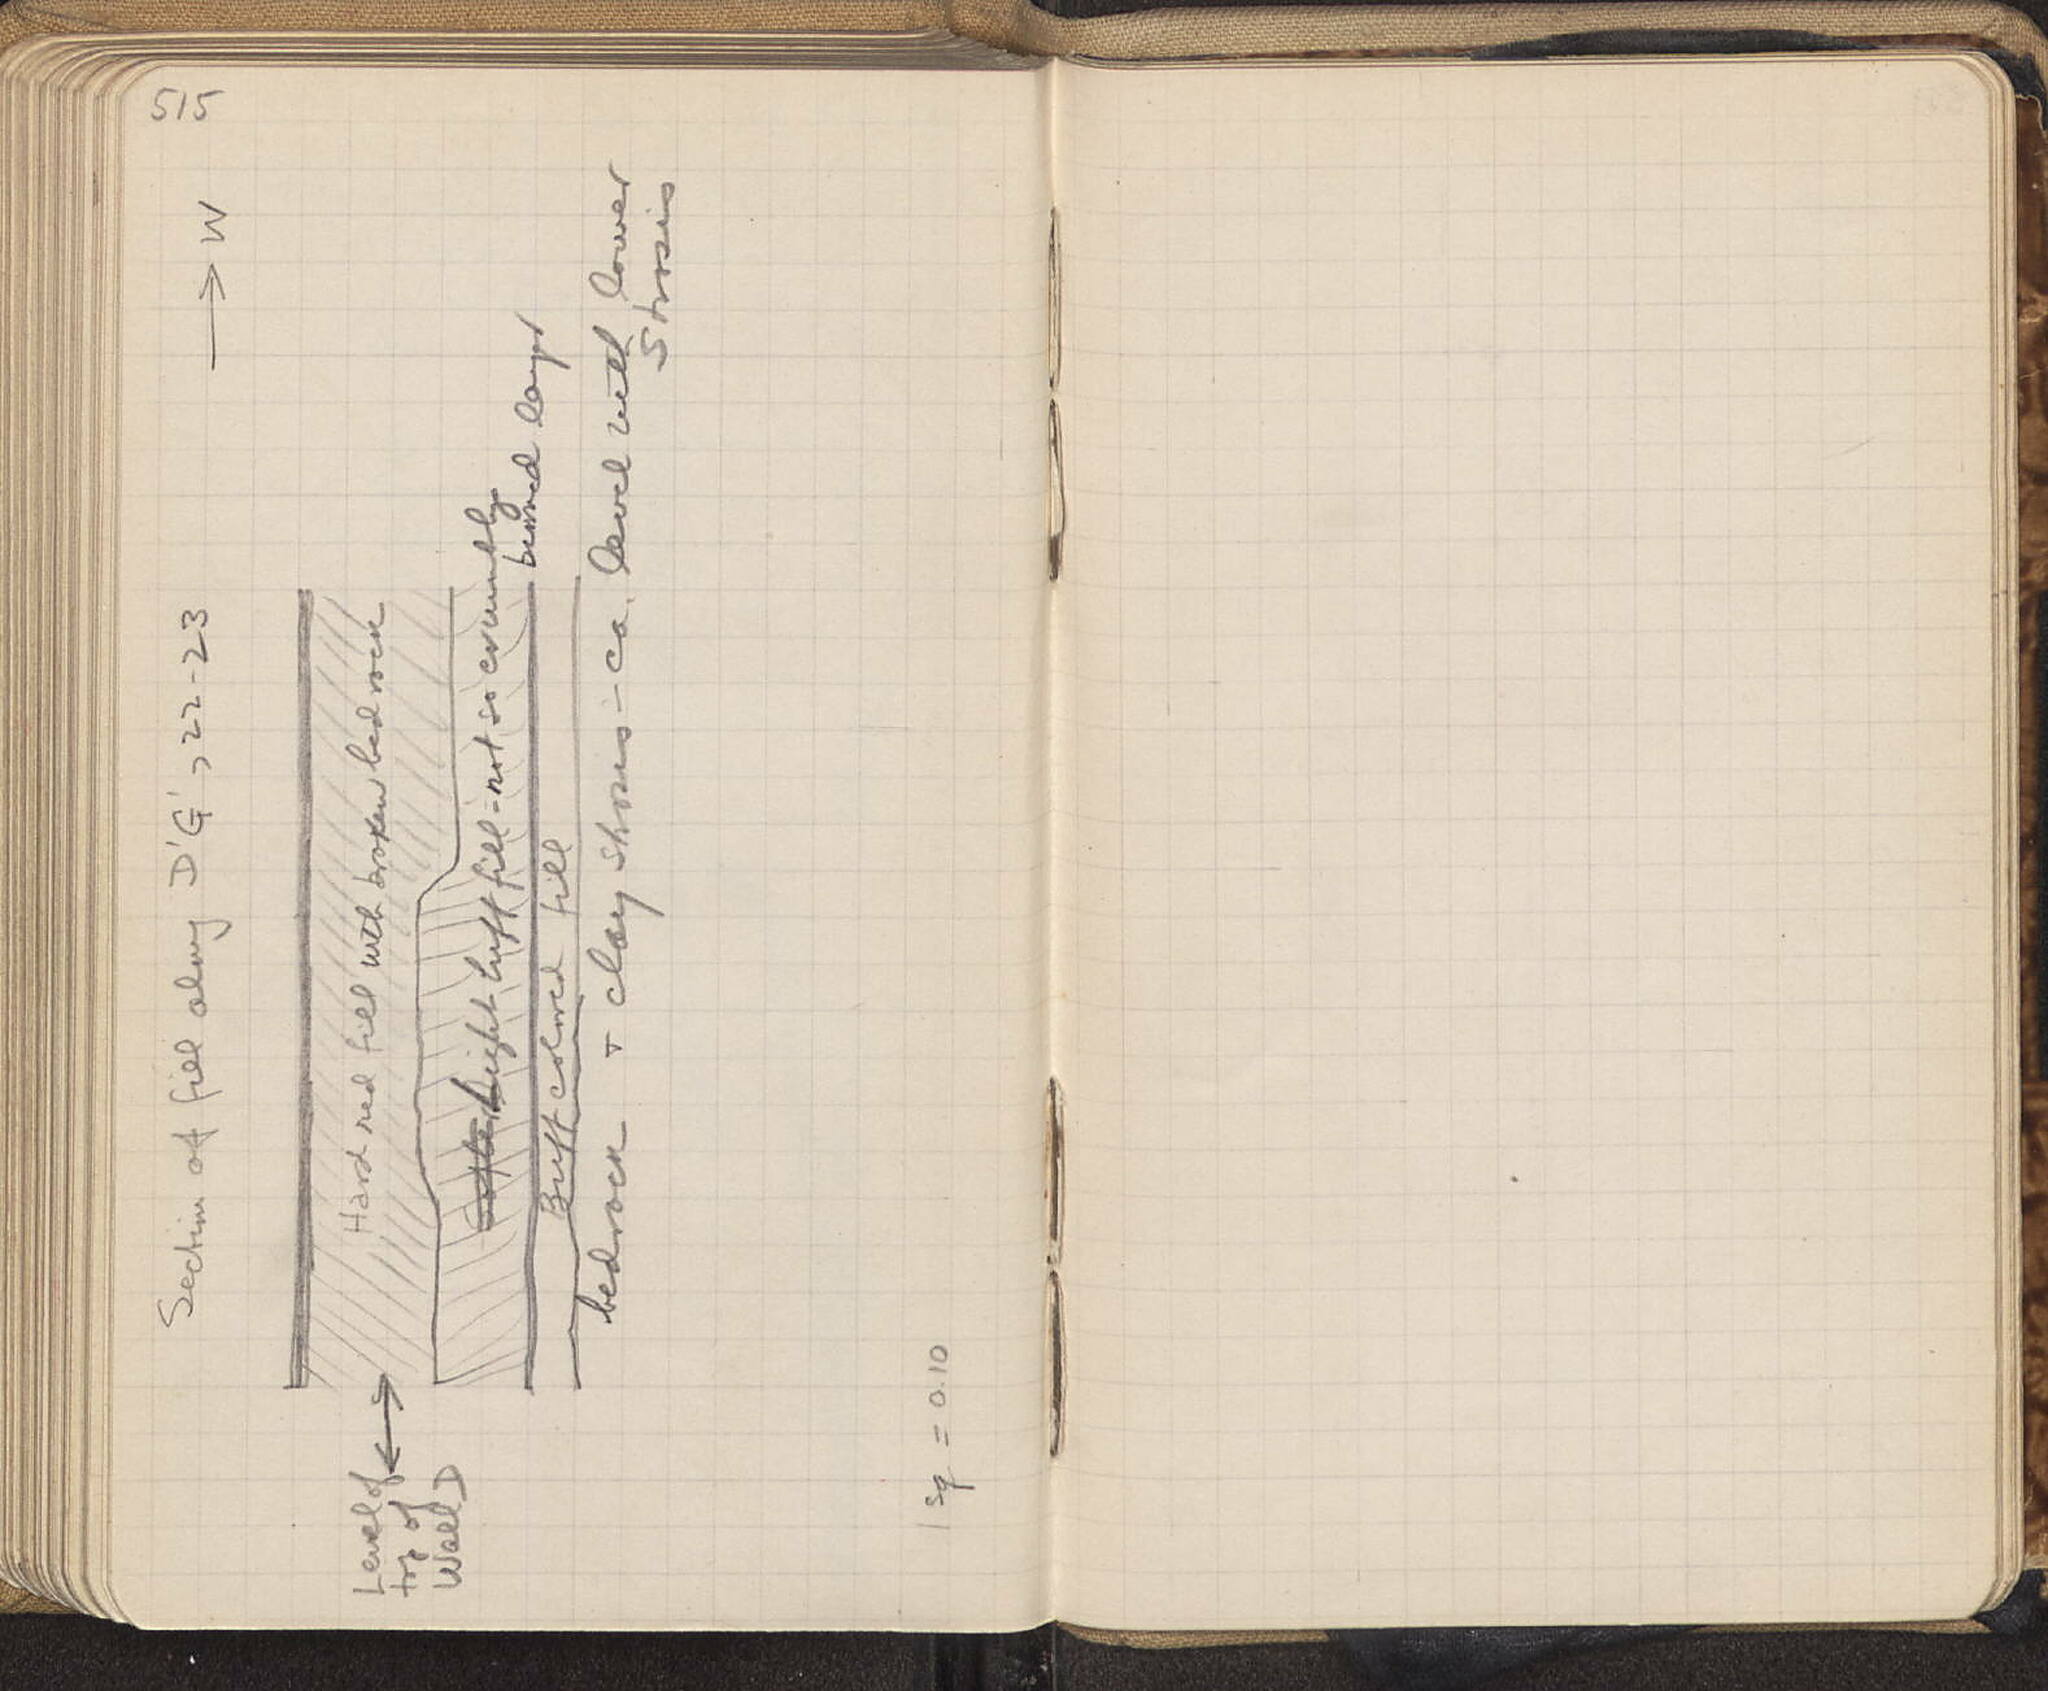 515
→ W
Section of fill along D'G', 22-23
Hard red fill with broken bedrock
Level of
top of
Wall D
Light buff fill - not so crumbly
burned layer
Buff colored fill
bedrock + clay strosis - ca. level with lower
strosis
1 sq = 0.10